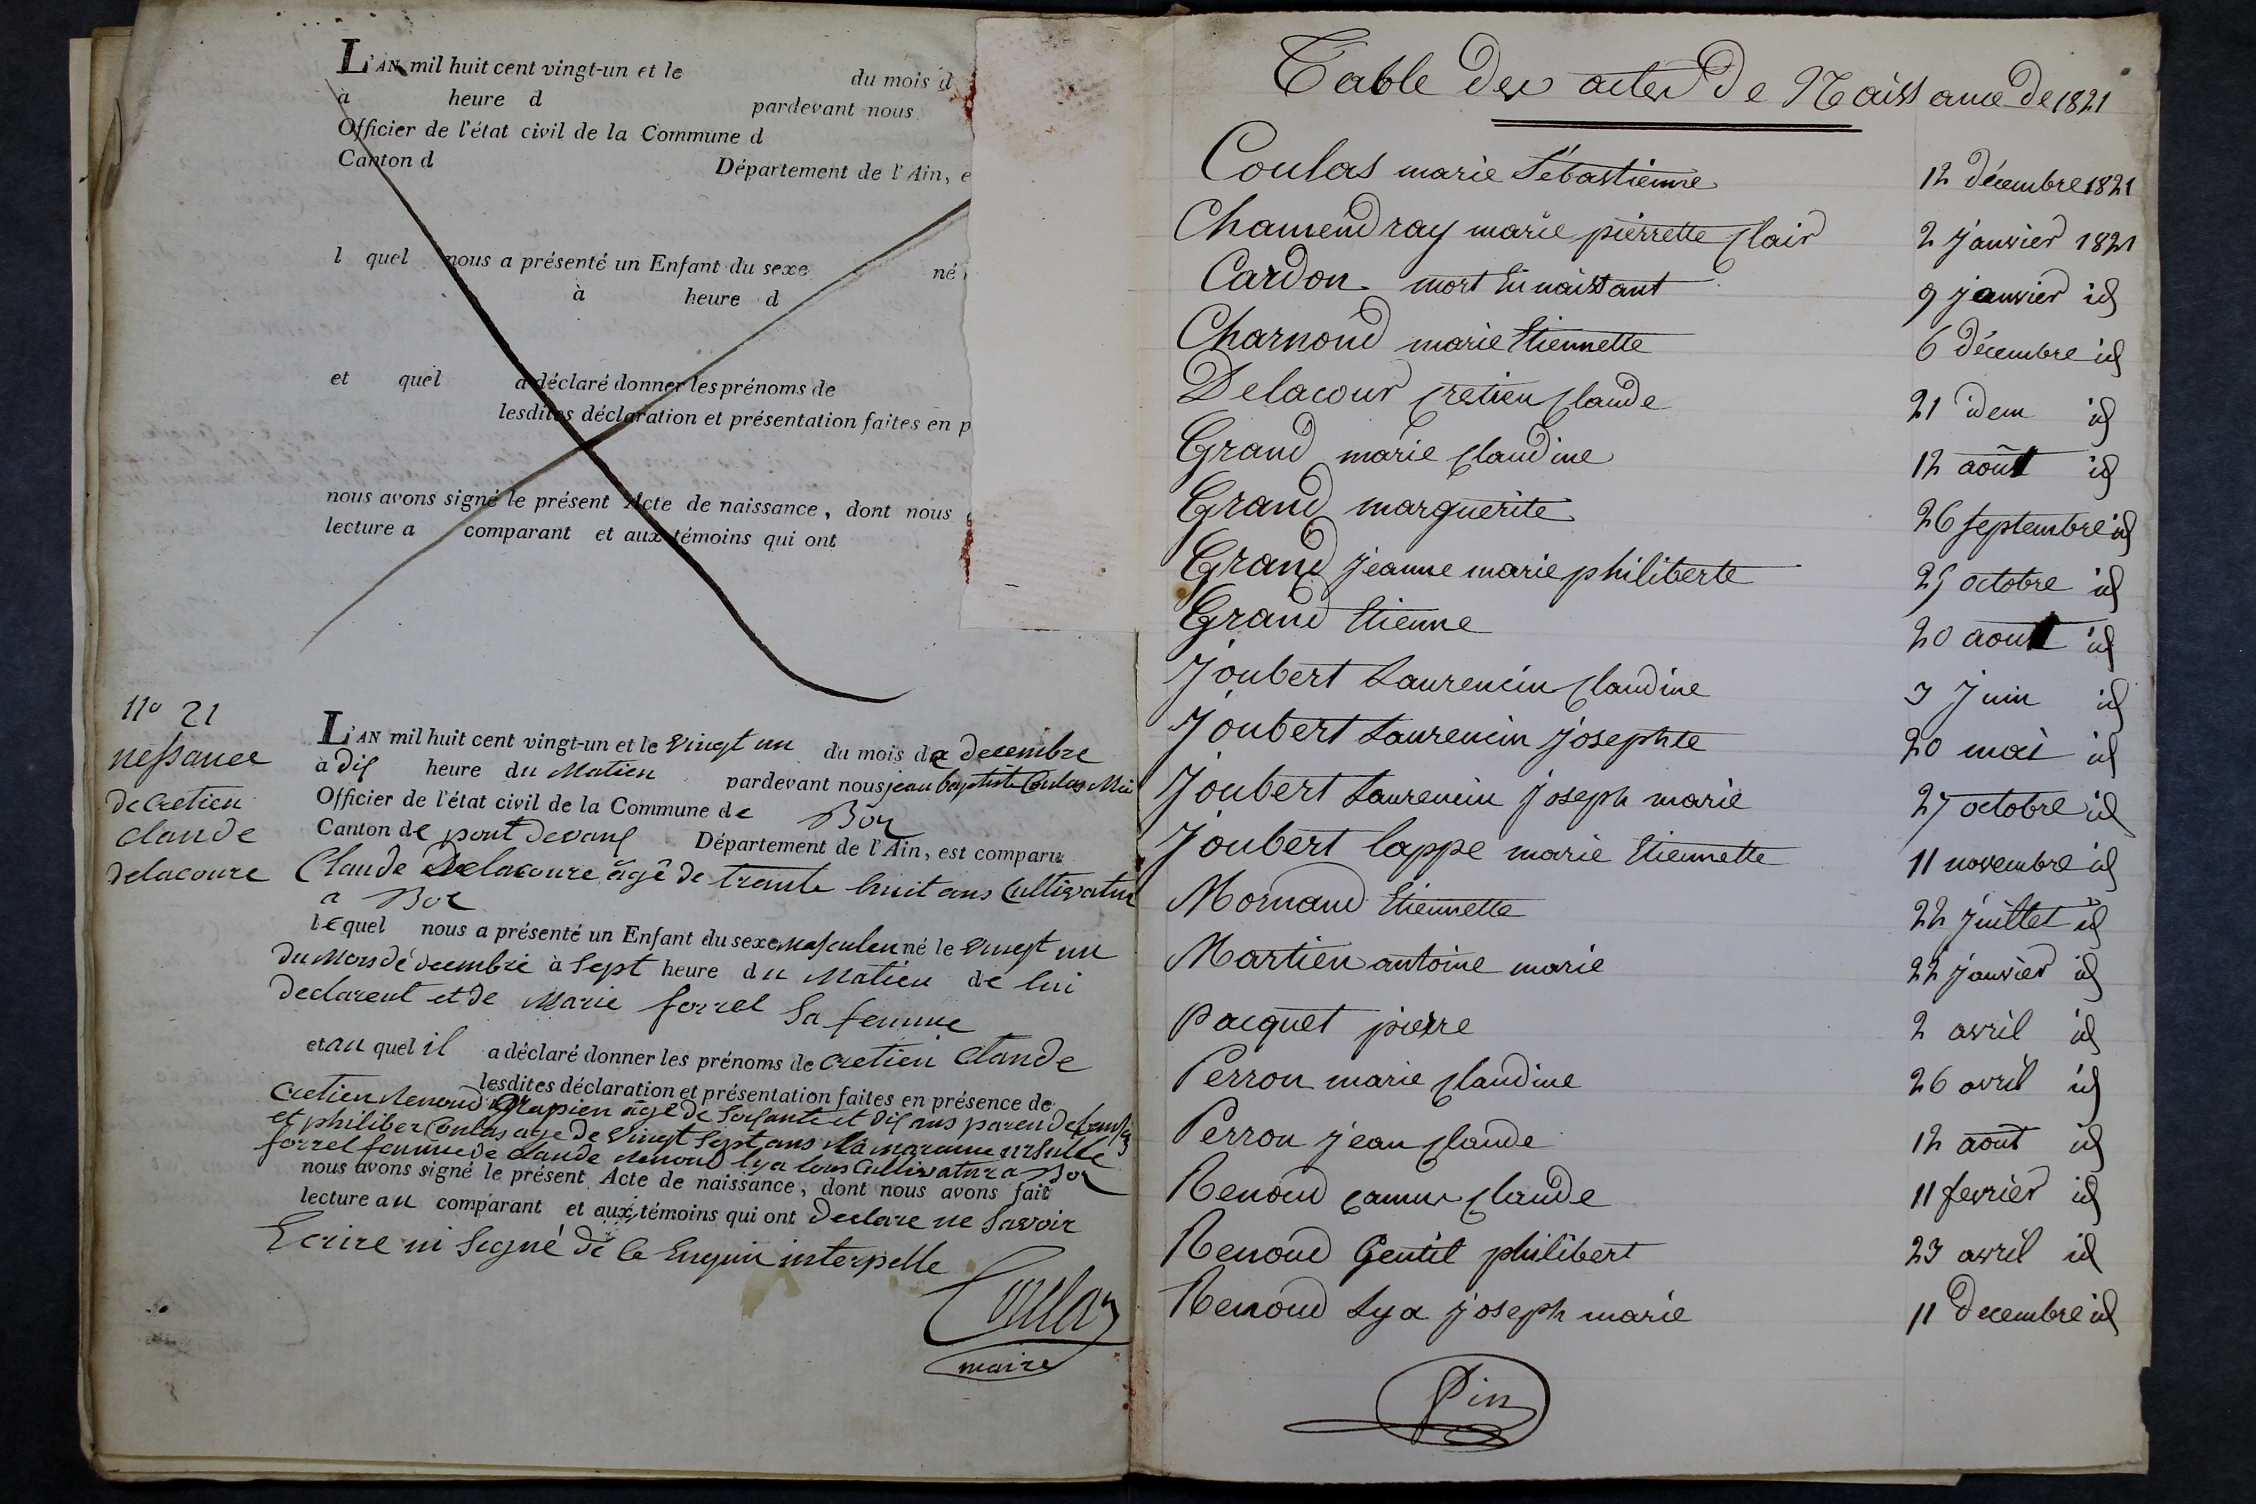 L'AN mil huit cent vingt-un et le du mois d
à heure d pardevant nous
Officier de l'état civil de la Commune d
Canton d Département de l'Ain, e
l quel nous a présenté un Enfant du sexe né
à heure d
et quel a déclaré donner les prénoms de
lesdites déclaration et présentation faites en p
nous avons signé le présent Acte de naissance, dont nous
lecture a comparant et aux témoins qui ont
no 21
nessance
de Cretien
claude
delacoure
L'AN mil huit cent vingt-un et le vingt un du mois de decembre
à dis heure du Matien pardevant nous jean baptiste Coulas
Officier de l'état civil de la Commune de Boz
Canton de pont de vaus Département de l'Ain, est comparu
Claude Delacoure âgé de trante huit ans Cultivateur
a Boz
lequel nous a présenté un Enfant du sexe masculen né le vingt un
du Mois dé decembre à sept heure du Matien de lui
declarent et de Marie forrel Sa femme
et au quel il a déclaré donner les prénoms de cretien claude
lesdites déclaration et présentation faites en présence de
cretien Renoud age de soisante et dis ans
et philiber Coulas age de vingt sept ans la maraine ursulle
forrel femme de claude Renoud lya tous Cultivature a Boz
nous avons signé le présent Acte de naissance, dont nous avons fait
lecture au comparant et aux témoins qui ont declare ne savoir
Ecrire ni signé de ce Enquir interpelle
Coulas
maire
Table des actes de Naissance de 1821
Coulas marie Sébastienne 12 décembre 1821
Chamendray marie pierrette Clair 2 janvier 1821
Cardon mort En naissant 9 janvier id
Charnoud marie Etiennette 6 décembre id
Delacour Cretien Claude 21 idem id
Grand marie Claudine 12 août id
Grand marguerite 26 septembre id
Grand jeanne marie philiberte 25 octobre id
Grand Etienne 20 aout id
Joubert Laurencin Claudine 3 Juin id
Joubert Laurencin josephte 20 mai id
Joubert Laurencin joseph marie 27 octobre id
Joubert lappe marie Etiennette 11 novembre id
Mornand Etiennette 22 juillet id
Martien antoine marie 22 janvier id
Pacquet pierre 2 avril id
Perron marie Claudine 26 avril id
Perron jean Claude 12 aout id
Renoud camus Claude 11 fevrier id
Renoud Gentil philibert 23 avril id
Renoud Lya joseph marie 11 decembre id
Pin